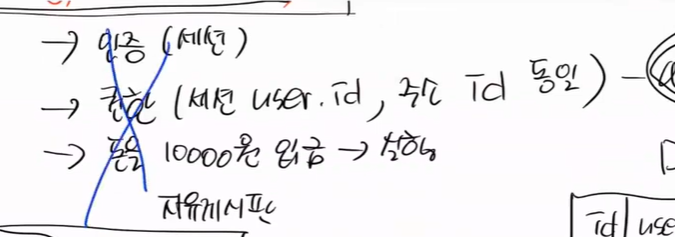 → 인증 (세션)
→ 권한 (세션 user.id, 주소 id 동일) -
→ 10000원 입금 →
자유게시판
id | use